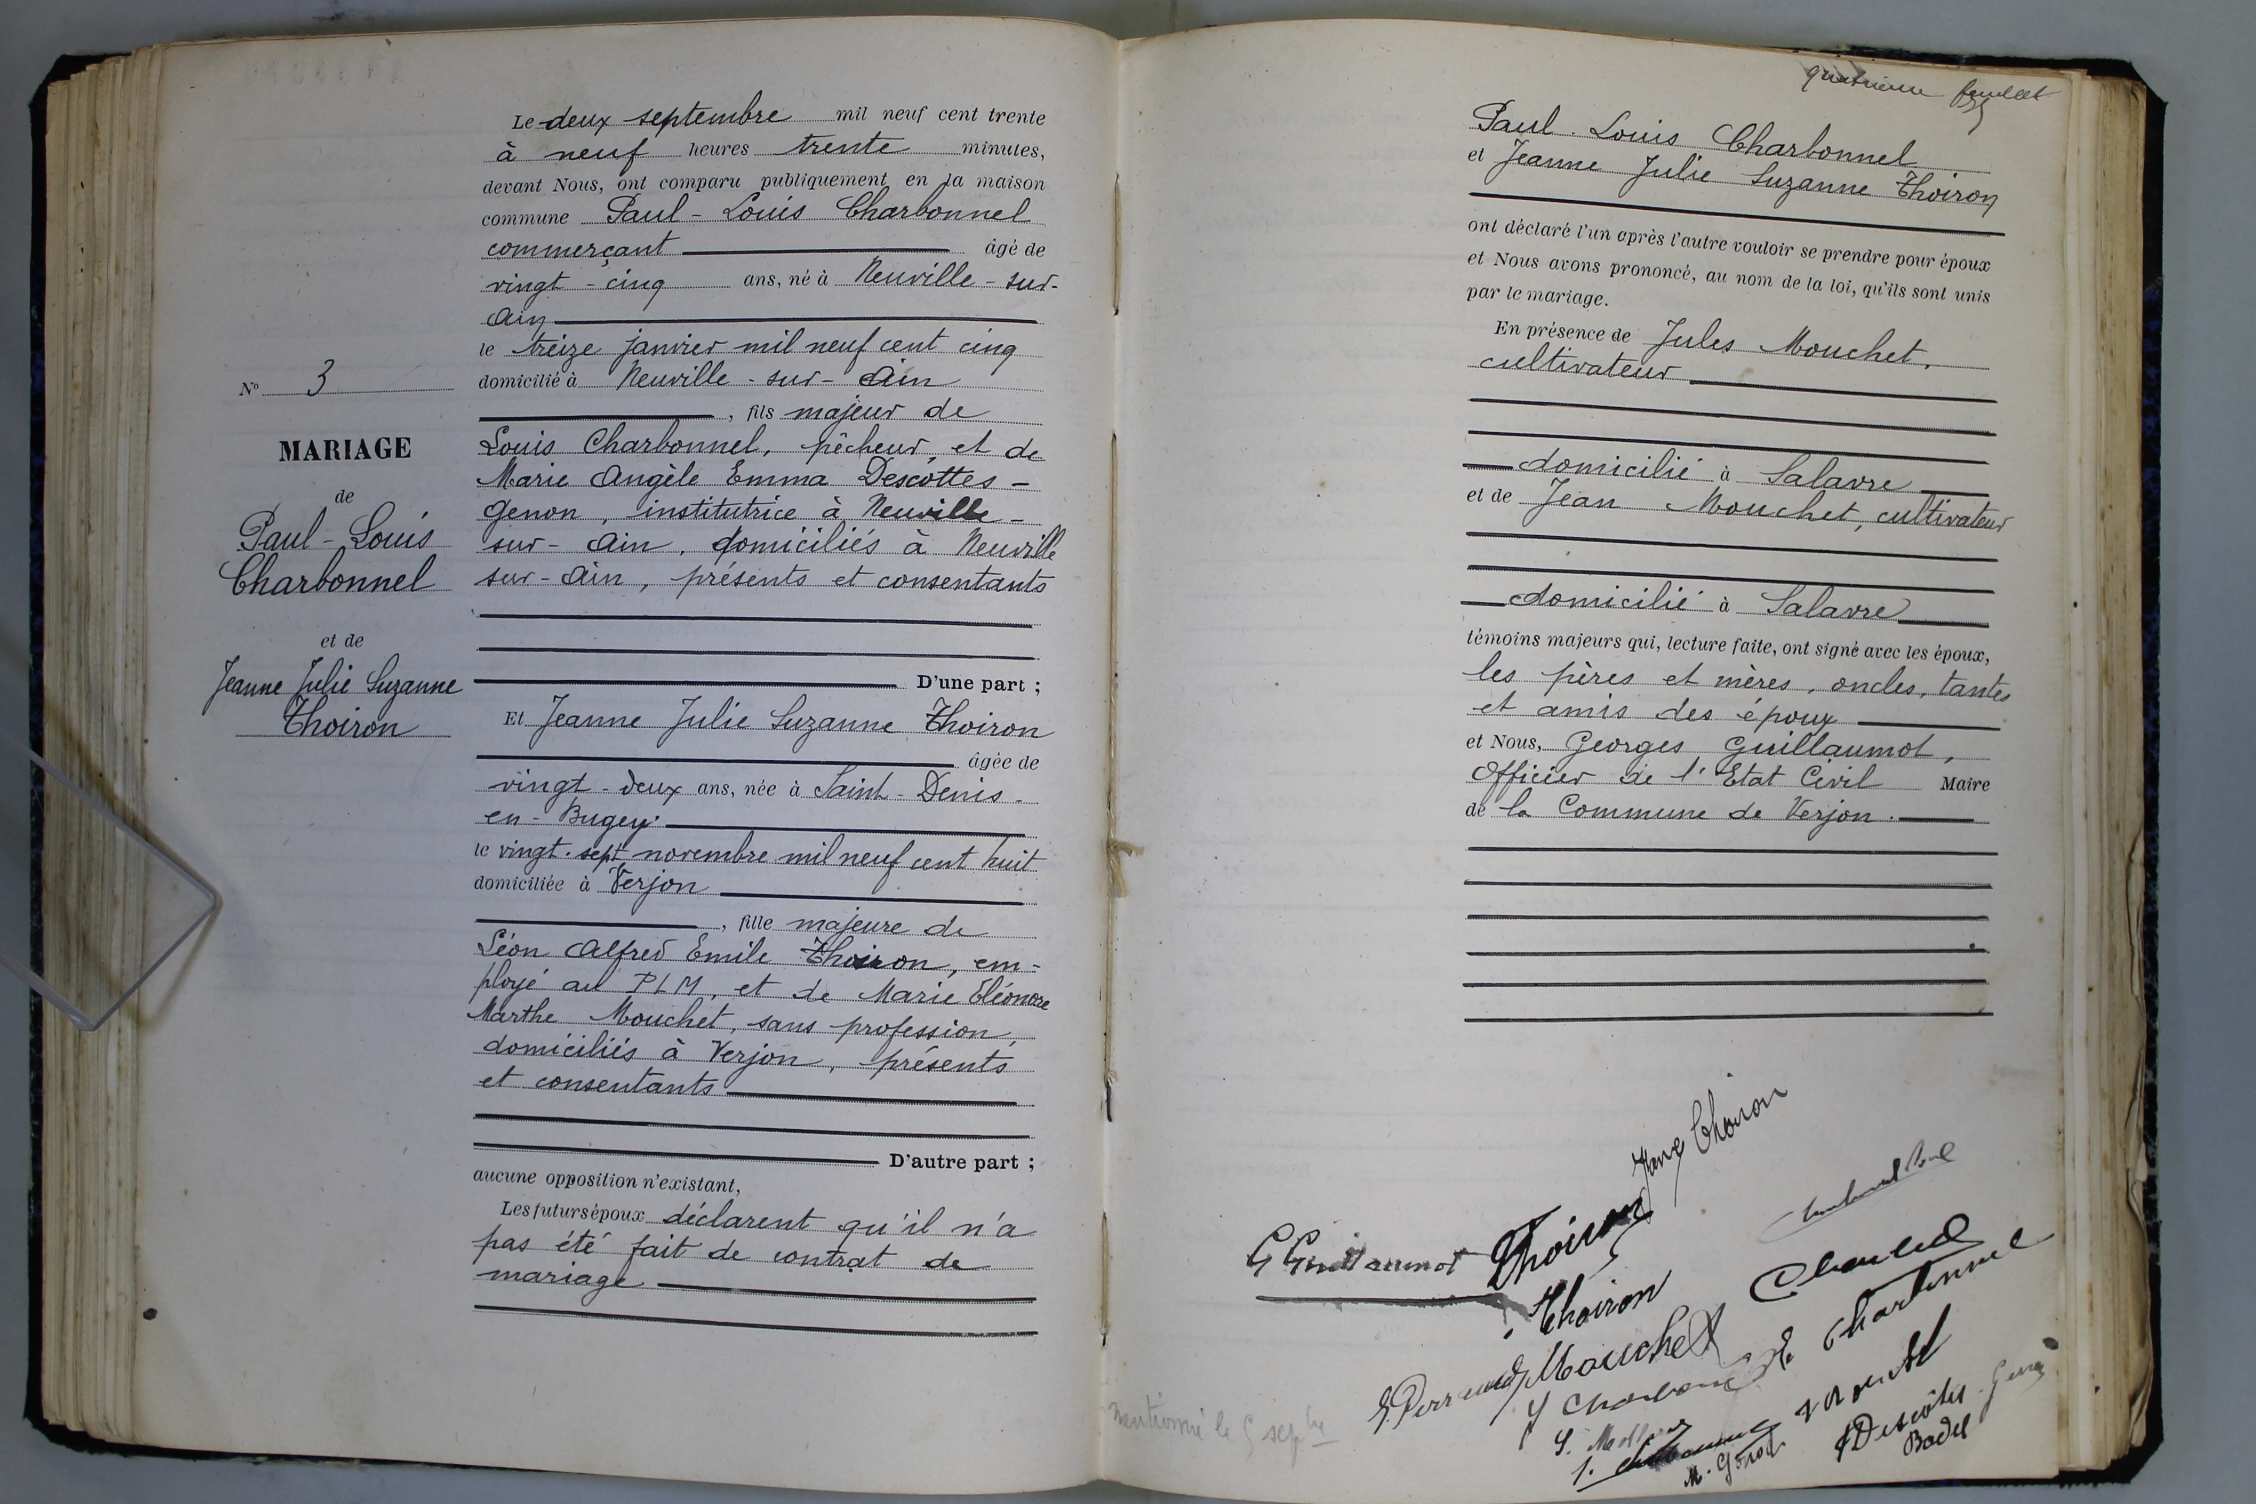 Le deux septembre mil neuf cent trente
à neuf heures trente minutes,
devant Nous, ont comparu publiquement en la maison
commune Paul-Louis Charbonnel
commerçant âgé de
vingt-cinq ans, né à Neuville-sur-
Ain
le treize janvier mil neuf cent cinq
domicilié à Neuville-sur-Ain
, fils majeur de
Louis Charbonnel, pêcheur, et de
Marie Angèle Emma Descottes-
Genon, institutrice à Neuville-
sur-Ain, domiciliés à Neuville
sur-Ain, présents et consentants
D'une part ;
Et Jeanne Julie Suzanne Thoiron
âgée de
vingt-deux ans, née à Saint-Denis-
en-Bugey.
le vingt-sept novembre mil neuf cent huit
domiciliée à Verjon
, fille majeure de
Léon Alfred Emile Thoiron, em-
ployé au PLM, et de Marie Eléonore
Marthe Mouchet, sans profession,
domiciliés à Verjon, présents
et consentants
D'autre part ;
aucune opposition n'existant,
Les futurs époux déclarent qu'il n'a
pas été fait de contrat de
mariage
N° 3
MARIAGE
de
Paul-Louis
Charbonnel
et de
Jeanne Julie Suzanne
Thoiron
quatrième feuillet
Paul-Louis Charbonnel
et Jeanne Julie Suzanne Thoiron
ont déclaré l'un après l'autre vouloir se prendre pour époux
et Nous avons prononcé, au nom de la loi, qu'ils sont unis
par le mariage.
En présence de Jules Mouchet,
cultivateur
domicilié à Salavre
et de Jean Mouchet, cultivateur
domicilié à Salavre
témoins majeurs qui, lecture faite, ont signé avec les époux,
les pères et mères, oncles, tantes
et amis des époux
et Nous, Georges Guillaumot,
Officier de l'Etat Civil Maire
de la Commune de Verjon.
Thoiron
G Guillaumot
Thoiron
Thoiron
Mouchet
E Charbonnel
Badel
mentionné le 5 septbre